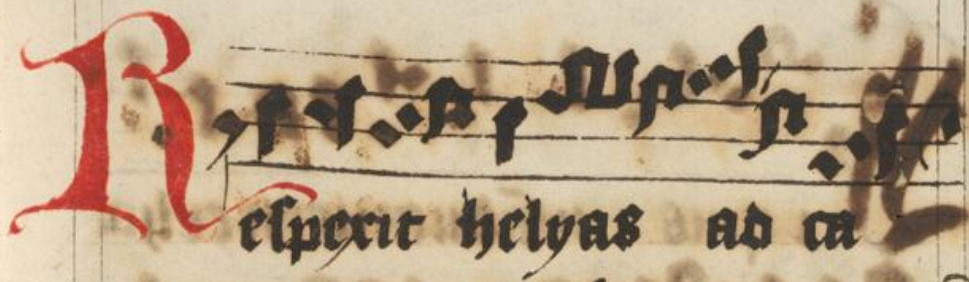 Respexit helyas ad ca